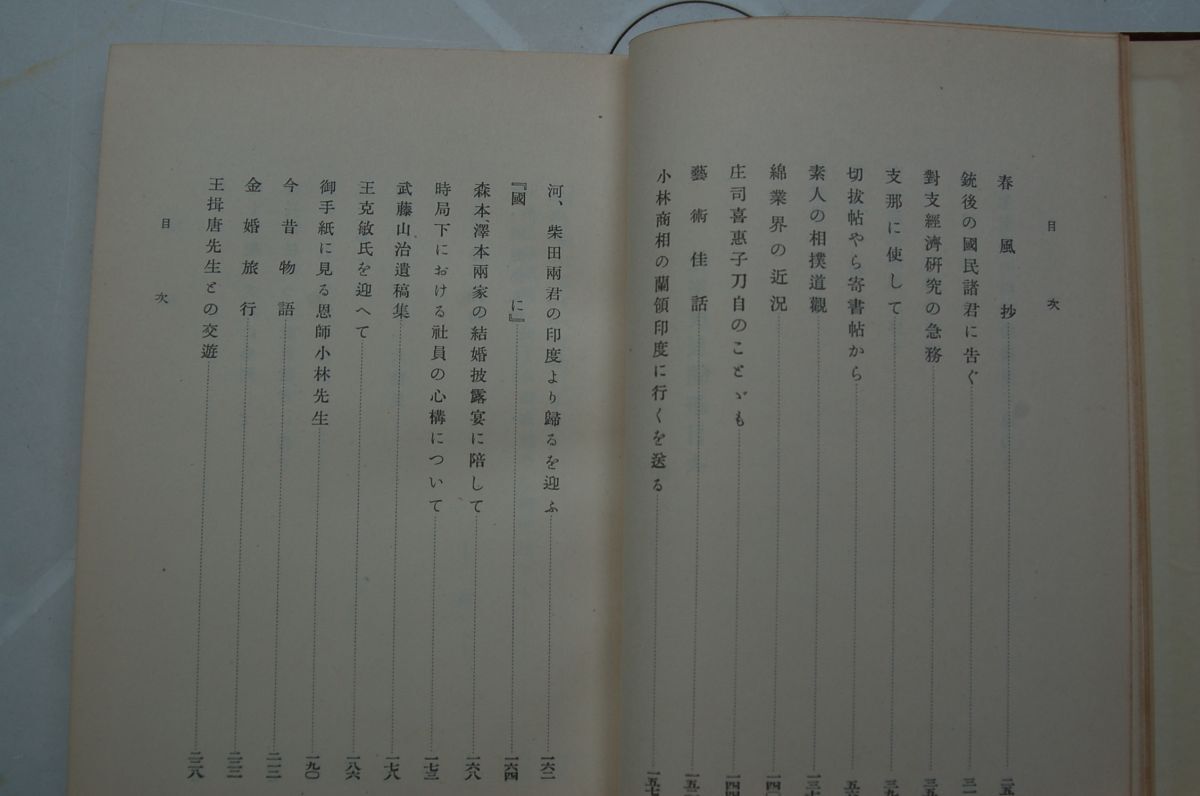 目次
春風抄
銃後の國民諸君に吿ぐ
對支經濟硏究の急務
支那に使して
切拔帖やら寄書帖から
素人の相撲道觀
綿業界の近況
庄司喜惠子刀自のことゞも
藝術佳話
小林商相の蘭領印度に行くを送る
河、柴田兩君の印度より歸るを迎ふ……一六二
『國に』……一六四
森本、澤本兩家の結婚披露宴に陪して……一六八
時局下における社員の心構について……一七三
武藤山治遺稿集……一七八
王克敏氏を迎へて……一八六
御手紙に見る恩師小林先生……一九〇
今昔物語
金婚旅行
王揖唐先生との交遊
目次